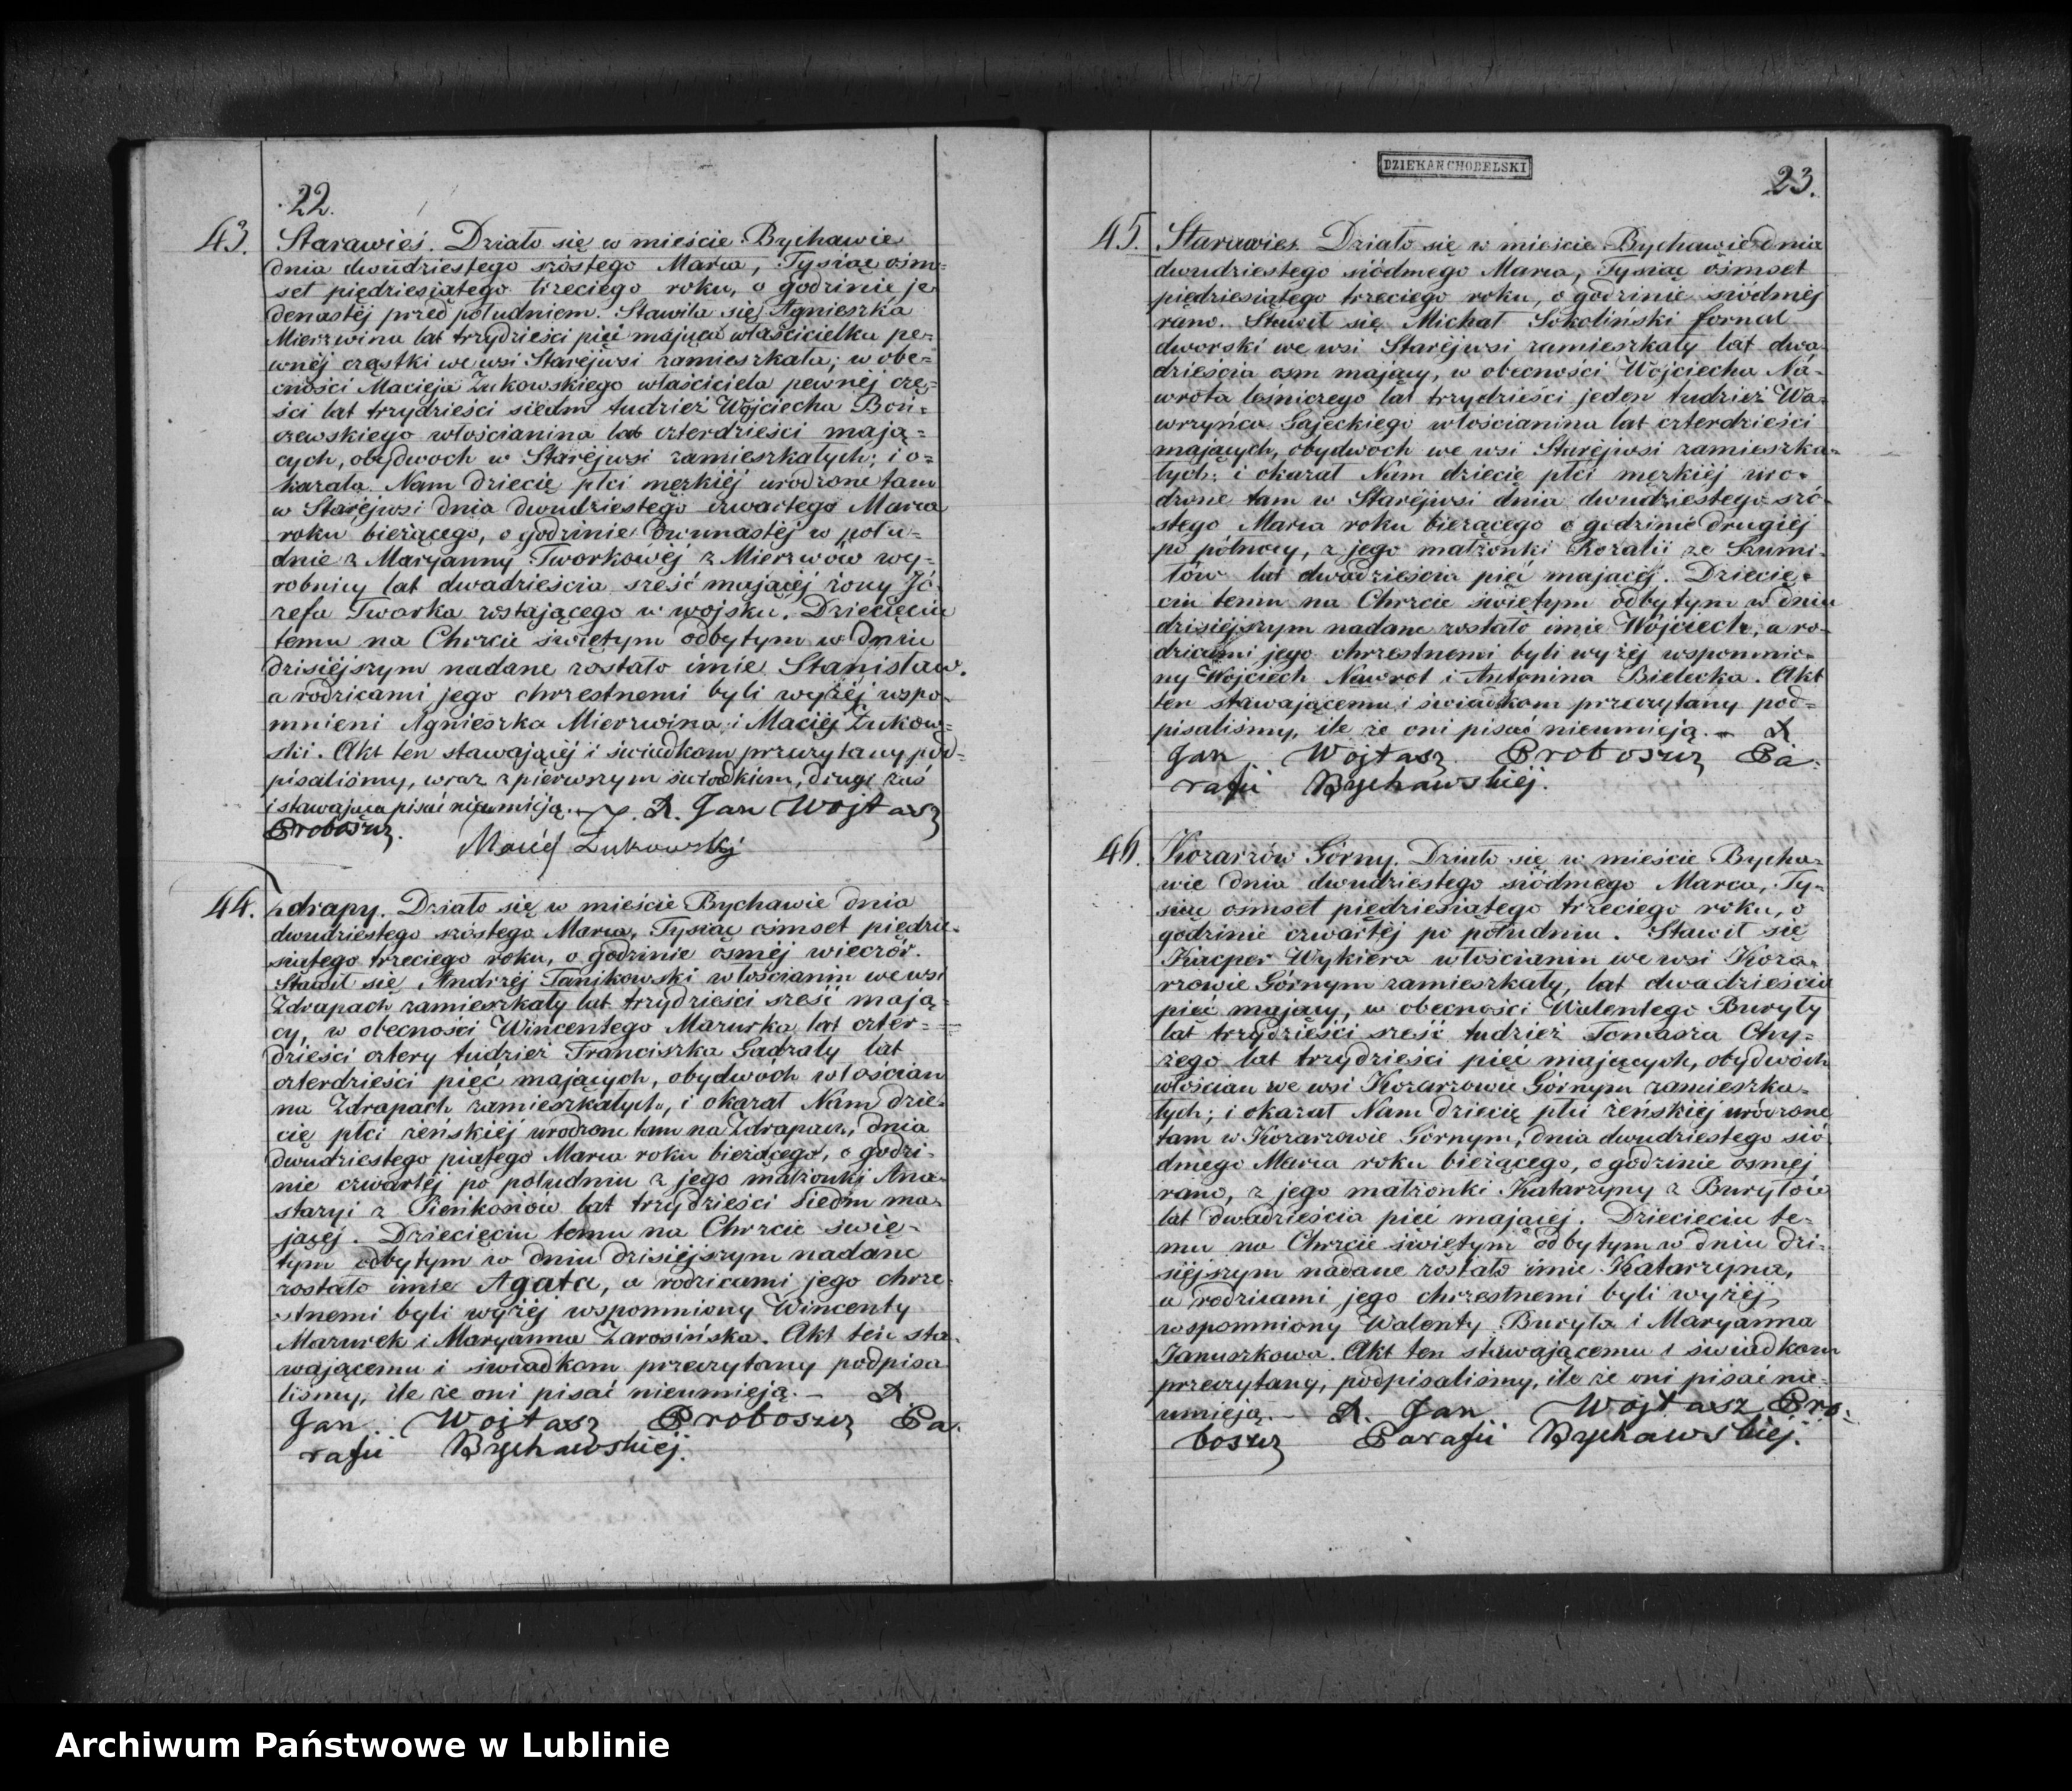 22.
43. Starawieś. Działo się w mieście Bychawie
dnia dwudziestego szóstego Marca, Tysiąc ośm=
set piędziesiątego trzeciego roku, o godzinie je
denastéj przed południem. Stawiła się Agnieszka
Mierzwina lat trzydzieści pięć mająca właścicielka pe=
wnéj cząstki we wsi Staréjwsi zamieszkała; w obe=
cności Macieja Żukowskiego właściciela pewnéj czę=
ści lat trzydzieści siedm tudzież Wojciecha Boń=
czewskiego włościanina lat czterdzieści mają=
cych, obydwoch w Staréjwsi zamieszkałych; i o=
kazała Nam dziecię płci męzkiéj urodzone tam
w Staréjwsi dnia dwudziestego czwartego Marca
roku bieżącego, o godzinie dwunastéj w połu=
dnie z Maryanny Tworkowéj z Mierzwów wy=
robnicy lat dwadzieścia sześć mającéj żony Jó=
zefa Tworka zostającego w wojsku. Dziecięciu
temu na Chrzcie świętym odbytym w dniu
dzisiéjszym nadane zostało imie Stanisław.
a rodzicami jego chrzestnemi byli wyżéj wspo=
mnieni Agnieszka Mierzwina i Maciéj Żukow=
ski. Akt ten stawającéj i świadkom przeczytany pod=
pisaliśmy, wraz z pierwszym świadkiem, drugi zaś
i stawająca pisać nieumieją. X. Jan Wojtasz
Proboszcz.
Maciéj Żukowski
44. Zdrapy. Działo się w mieście Bychawie dnia
dwudziestego szóstego Marca, Tysiąc ośmset piędzie=
siątego trzeciego roku, o godzinie ósméj wieczór.
Stawił się Andrzéj Tanikowski włościanin we wsi
Zdrapach zamieszkały lat trzydzieści sześć mają=
cy, w obecności Wincentego Mazurka lat czter=
dzieści cztery tudzież Franciszka Gadzały lat
czterdzieści pięć mających, obydwóch włościan
na Zdrapach zamieszkałych, i okazał Nam dzie=
cię płci żeńskiéj urodzone tam na Zdrapach, dnia
dwudziestego piątego Marca roku bieżącego, o godzi=
nie czwartéj po południu z jego małżonki Ana=
stazyi z Pieńkosiów lat trzydzieści siedm ma=
jącéj. Dziecięciu temu na Chrzcie świę=
tym odbytym w dniu dzisiéjszym nadane
zostało imie Agata, a rodzicami jego chrze=
stnemi byli wyżéj wspomniony Wincenty
Mazurek i Maryanna Zarosińska. Akt ten sta=
wającemu i świadkom przeczytany podpisa
liśmy, ile że oni pisać nieumieją. — X.
Jan Wojtasz Proboszcz Pa=
rafii Bychawskiej.
DZIEKAN CHODELSKI
23.
45. Starawieś. Działo się w mieście Bychawie dnia
dwudziestego siódmego Marca, Tysiąc ośmset
piędziesiątego trzeciego roku, o godzinie siódméj
rano. Stawił się Michał Sokoliński fornal
dworski we wsi Staréjwsi zamieszkały lat dwa
dzieścia ośm mający, w obecności Wojciecha Na=
wrota leśniczego lat trzydzieści jeden tudzież Wa=
wrzyńca Gajeckiego włościanina lat czterdzieści
mających, obydwoch we wsi Staréjwsi zamieszka=
łych: i okazał Nam dziecię płci męzkiéj uro=
dzone tam w Staréjwsi dnia dwudziestego szó=
stego Marca roku bieżącego o godzinie drugiéj
po północy, z jego małżonki Rozalii ze Szumi=
łów lat dwadzieścia pięć mającéj. Dziecię=
ciu temu na Chrzcie świętym odbytym w dniu
dzisiéjszym nadane zostało imie Wojciech, a ro=
dzicami jego chrzestnemi byli wyżéj wspomnio=
ny Wojciech Nawrot i Antonina Bielecka. Akt
ten stawającemu i świadkom przeczytany pod=
pisaliśmy, ile że oni pisać nieumieją. — X
Jan Wojtasz Proboszcz Pa=
rafii Bychawskiej.
46. Kozarzów Górny. Działo się w mieście Bycha=
wie dnia dwudziestego siódmego Marca, Ty=
siąc ośmset piędziesiątego trzeciego roku, o
godzinie czwartéj po południu. Stawił się
Kacper Wykiera włościanin we wsi Koza=
rzowie Górnym zamieszkały, lat dwadzieścia
pięć mający, w obecności Walentego Buryły
lat trzydzieści sześć tudzież Tomasza Chy=
żego lat trzydzieści pięć mających, obydwóch
włościan we wsi Kozarzowie Górnym zamieszka=
łych; i okazał Nam dziecię płci żeńskiéj urodzone
tam w Kozarzowie Górnym, dnia dwudziestego sió
dmego Marca roku bieżącego, o godzinie ósméj
rano, z jego małżonki Katarzyny z Buryłów
lat dwadzieścia pięć mającéj. Dziecięciu te=
mu na Chrzcie świętym odbytym w dniu dzi=
siéjszym nadane zostało imie Katarzyna,
a rodzicami jego chrzestnemi byli wyżéj
wspomniony Walenty Buryła i Maryanna
Januszkowa. Akt ten stawającemu i świadkom
przeczytany, podpisaliśmy, ile że oni pisać nie=
umieją. — X. Jan Wojtasz Pro=
boszcz Parafii Bychawskiej.
Archiwum Państwowe w Lublinie